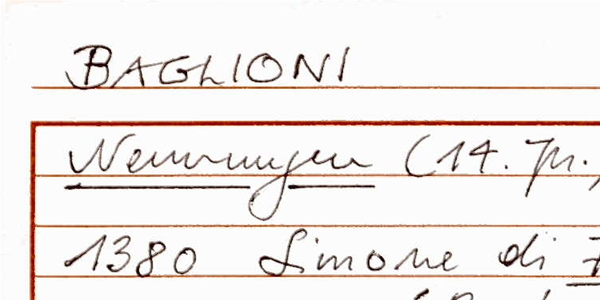 BAGLIONI
Nennungen (14. Jh.)
1380 Simone di